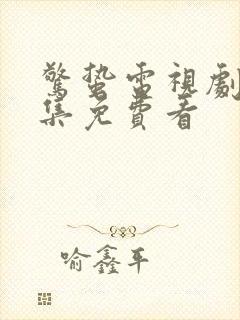 驚蟄電視劇
集免費看
喻鑫平